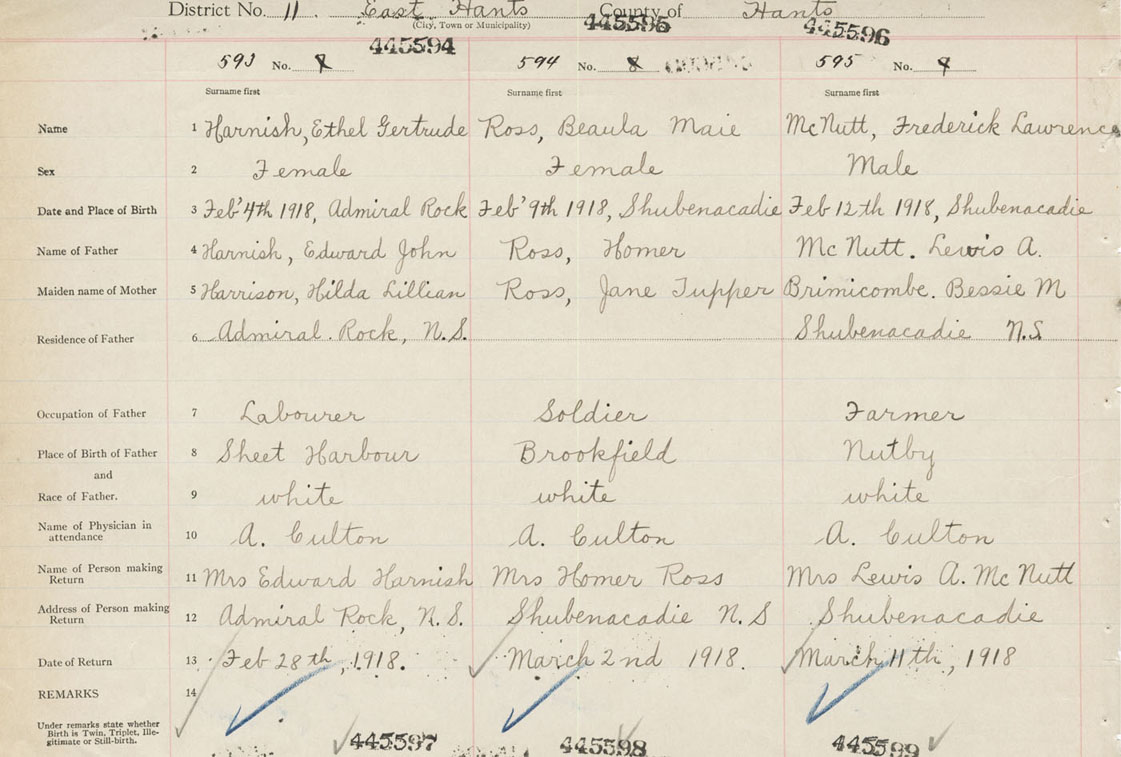 District No. 11. East Hants County of Hants
(City, Town or Municipality)
445594 445595 445596
593 No. 594 No. 8 595 No.
Surname first Surname first Surname first
Name 1 Harnish, Ethel Gertrude Ross, Beaula Maie McNutt, Frederick Lawrence
Sex 2 Female Female Male
Date and Place of Birth 3 Feb' 4th 1918, Admiral Rock Feb' 9th 1918, Shubenacadie Feb 12th 1918, Shubenacadie
Name of Father 4 Harnish, Edward John Ross, Homer McNutt. Lewis A.
Maiden name of Mother 5 Harrison, Hilda Lillian Ross, Jane Tupper Brimicombe. Bessie M
Residence of Father 6 Admiral. Rock, N.S. Shubenacadie N.S
Occupation of Father 7 Labourer Soldier Farmer
Place of Birth of Father 8 Sheet Harbour Brookfield Nutby
and
Race of Father. 9 white white white
Name of Physician in attendance 10 A. Culton A. Culton A. Culton
Name of Person making Return 11 Mrs Edward Harnish Mrs Homer Ross Mrs Lewis A. McNutt
Address of Person making Return 12 Admiral Rock, N.S. Shubenacadie N.S Shubenacadie
Date of Return 13 Feb 28th, 1918. March 2nd 1918. March 11th, 1918
REMARKS 14
Under remarks state whether
Birth is Twin, Triplet, Ille-
gitimate or Still-birth.
445597 445598 445599